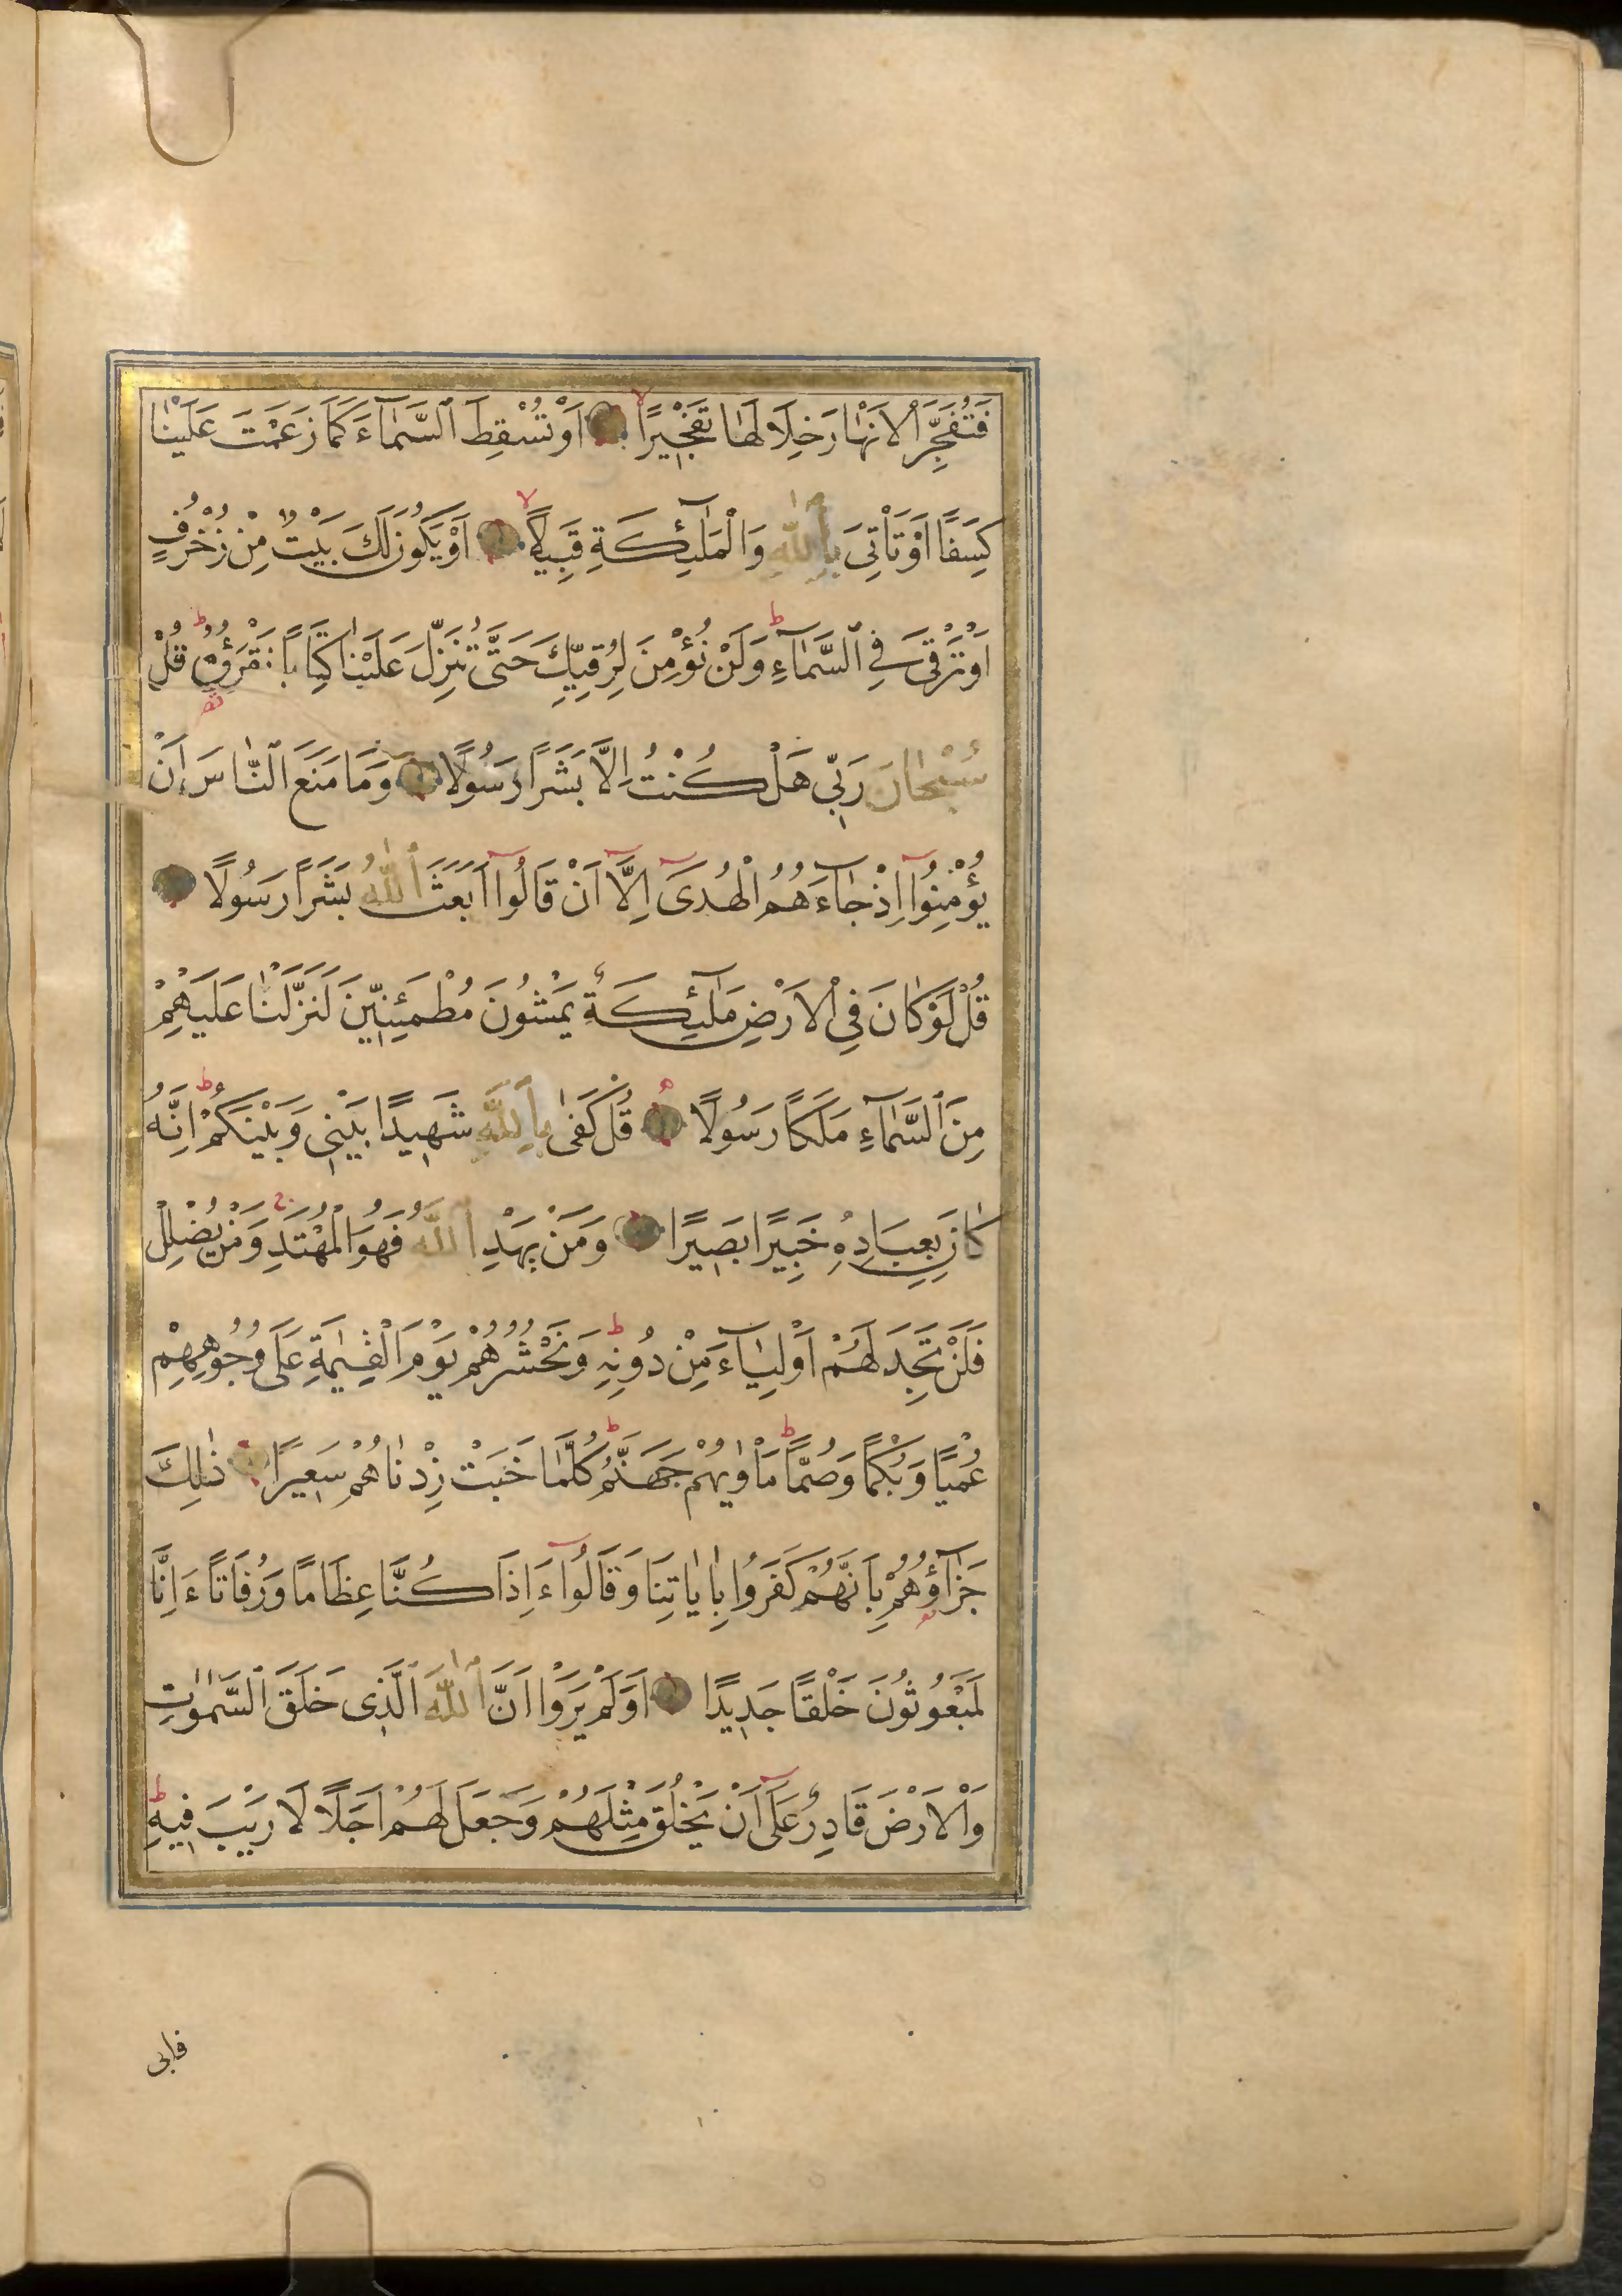 فَتُفَجِّرَ الْاَنْهَارَ خِلَالَهَا تَفْجِيرًا اَوْ تُسْقِطَ السَّمَآءَ كَمَا زَعَمْتَ عَلَيْنَا
كِسَفًا اَوْ تَاْتِىَ بِاللّٰهِ وَالْمَلٰٓئِكَةِ قَبِيلًا اَوْ يَكُونَ لَكَ بَيْتٌ مِنْ زُخْرُفٍ
اَوْ تَرْقٰى فِي السَّمَآءِ وَلَنْ نُؤْمِنَ لِرُقِيِّكَ حَتّٰى تُنَزِّلَ عَلَيْنَا كِتَابًا نَقْرَؤُهُ قُلْ
سُبْحَانَ رَبِّي هَلْ كُنْتُ اِلَّا بَشَرًا رَسُولًا وَمَا مَنَعَ النَّاسَ اَنْ
يُؤْمِنُوا اِذْ جَآءَهُمُ الْهُدٰى اِلَّا اَنْ قَالُوا اَبَعَثَ اللّٰهُ بَشَرًا رَسُولًا
قُلْ لَوْ كَانَ فِي الْاَرْضِ مَلٰٓئِكَةٌ يَمْشُونَ مُطْمَئِنِّينَ لَنَزَّلْنَا عَلَيْهِمْ
مِنَ السَّمَآءِ مَلَكًا رَسُولًا قُلْ كَفٰى بِاللّٰهِ شَهِيدًا بَيْنِي وَبَيْنَكُمْ اِنَّهُ
كَانَ بِعِبَادِهِ خَبِيرًا بَصِيرًا وَمَنْ يَهْدِ اللّٰهُ فَهُوَ الْمُهْتَدِ وَمَنْ يُضْلِلْ
فَلَنْ تَجِدَ لَهُمْ اَوْلِيَآءَ مِنْ دُونِهِ وَنَحْشُرُهُمْ يَوْمَ الْقِيٰمَةِ عَلٰى وُجُوهِهِمْ
عُمْيًا وَبُكْمًا وَصُمًّا مَاْوٰيهُمْ جَهَنَّمُ كُلَّمَا خَبَتْ زِدْنَاهُمْ سَعِيرًا ذٰلِكَ
جَزَآؤُهُمْ بِاَنَّهُمْ كَفَرُوا بِاٰيَاتِنَا وَقَالُوا ءَاِذَا كُنَّا عِظَامًا وَرُفَاتًا ءَاِنَّا
لَمَبْعُوثُونَ خَلْقًا جَدِيدًا اَوَلَمْ يَرَوْا اَنَّ اللّٰهَ الَّذِى خَلَقَ السَّمٰوَاتِ
وَالْاَرْضَ قَادِرٌ عَلٰى اَنْ يَخْلُقَ مِثْلَهُمْ وَجَعَلَ لَهُمْ اَجَلًا لَا رَيْبَ فِيهِ
فابى